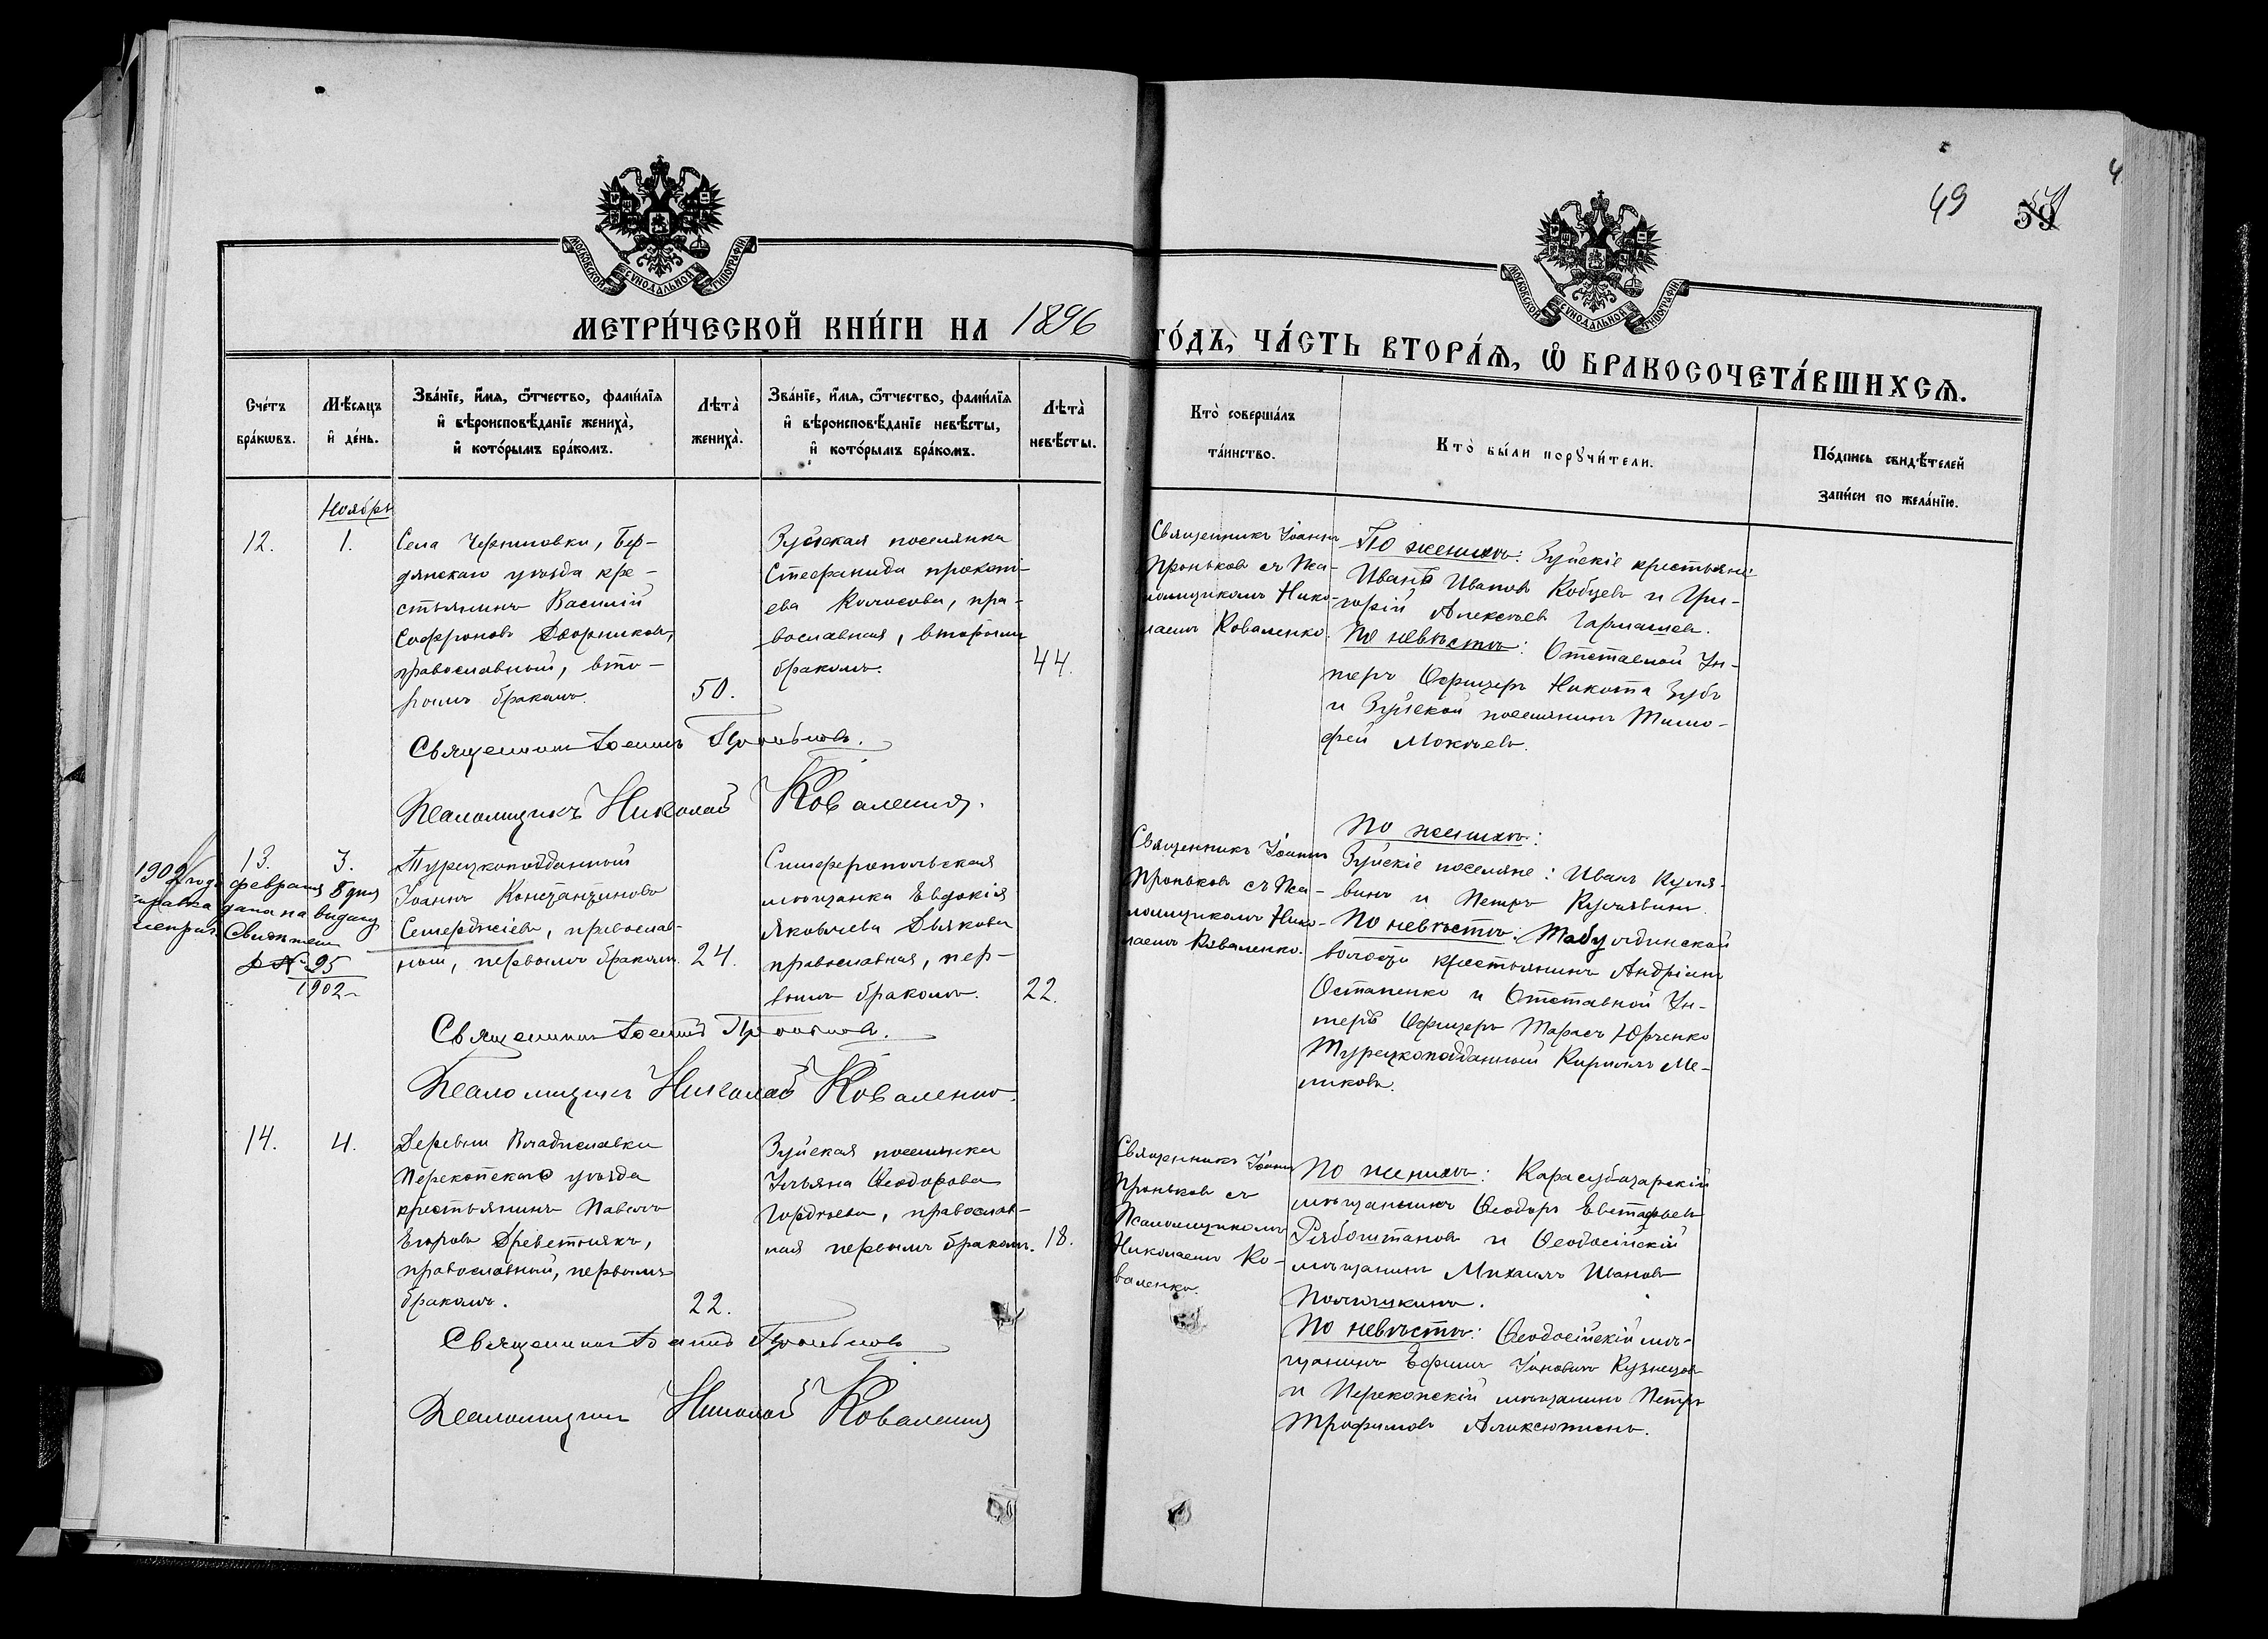 49 59
МОСКОВСКОЙ СУНОДАЛЬНОЙ ТИПОГРАФІИ
МОСКОВСКОЙ СУНОДАЛЬНОЙ ТИПОГРАФІИ
МЕТРИ́ЧЕСКОЙ КНИ́ГИ НА 1896
ГО́ДЪ, ЧА́СТЬ ВТОРА́Ѧ, Ѽ БРАКОСОЧЕТА́ВШИХСѦ.
Сче́тъ бра́кѡвъ.
Мѣ́сяцъ и҆ де́нь.
Зва́нїе, и҆́мѧ, ѻ҆́тчество, фами́лїѧ
и҆ вѣроисповѣ́данїе жениха̀,
и҆ кото́рымъ бра́комъ.
Лѣта̀ жениха̀.
Зва́нїе, и҆́мѧ, ѻ҆́тчество, фами́лїѧ
и҆ вѣроисповѣ́данїе невѣ́сты,
и҆ кото́рымъ бра́комъ.
Лѣта̀ невѣ́сты.
Кто̀ соверша́лъ
та́инство.
Кто̀ бы́ли порꙋчи́тели.
По́дпись свидѣ́телей
за́писи по жела́нїю.
Ноябрь
12.
1.
Села Черниговки, Бер-
дянскаго уѣзда кре-
стьянинъ Василій
Софроновъ Дворниковъ,
православный, вто-
рымъ бракомъ.
50.
Зуйская поселянка
Стефанида Прокопі-
ева Колосова, пра-
вославная, вторымъ
бракомъ.
44.
Священникъ Іоаннъ
Проньковъ съ Пса-
ломщикомъ Нико-
лаемъ Коваленко.
По женихѣ: Зуйскіе крестьяне
Иванъ Ивановъ Кобцевъ и Гри-
горій Алексѣевъ Гармашевъ.
По невѣстѣ: Отставной Ун-
теръ Офицеръ Никита Зубъ
и Зуйской поселянинъ Тимо-
фей Мокѣевъ.
Священникъ Іоаннъ Проньковъ.
Псаломщикъ Николай Коваленко.
13.
3.
1902 года февраля 8 дня
справка дана на выдачу
Свидѣтел
№ 25
1902
Турецкоподданный
Іоаннъ Константиновъ
Семерджіевъ, православ-
ный, первымъ бракомъ.
24.
Симферопольская
мѣщанка Евдокія
Яковлева Дьякова
православная, пер-
вымъ бракомъ.
22.
Священникъ Іоаннъ
Проньковъ съ Пса-
ломщикомъ Нико-
лаемъ Коваленко.
По женихѣ:
Зуйскіе поселяне: Иванъ Куля-
винъ и Петръ Кулявинъ.
По невѣстѣ: Табулдинской
волости крестьянинъ Андріанъ
Остапенко и Отставной Ун-
теръ Офицеръ Тарасъ Юрченко
Турецкоподданный Кириллъ Ме-
ликовъ.
Священникъ Іоаннъ Проньковъ.
Псаломщикъ Николай Коваленко.
14.
4.
Деревни Владиславки
Перекопскаго уѣзда
крестьянинъ Павелъ
Егоровъ Древетнякъ,
православный, первымъ
бракомъ.
22.
Зуйская поселянка
Ульяна Ѳеодорова
Гордѣева, православ-
ная первымъ бракомъ.
18.
Священникъ Іоаннъ
Проньковъ съ
Псаломщикомъ
Николаемъ Ко-
валенко.
По женихѣ: Карасубазарскій
мѣщанинъ Ѳеодоръ Евстафьевъ
Рябоштановъ и Ѳеодосійскій
мѣщанинъ Михаилъ Ивановъ
По невѣстѣ: Ѳеодосійскій мѣ-
щанинъ Ефимъ Кузнецовъ
и Перекопскій мѣщанинъ Петръ
Трофимовъ Алексютинъ.
Священникъ Іоаннъ Проньковъ
Псаломщикъ Николай Коваленко